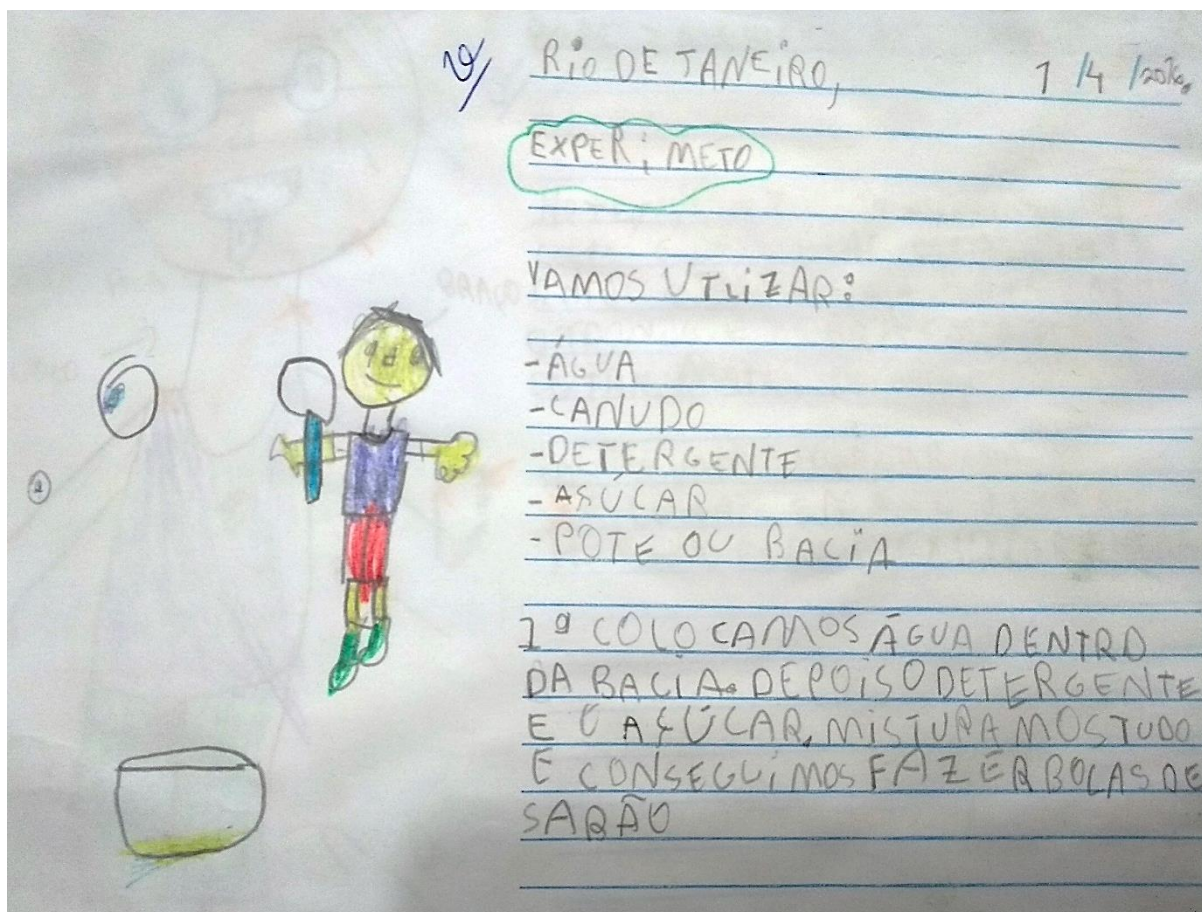 RIO DE JANEIRO, 1/4/2016.
EXPERiMETO
VAMOS UTLiZAR:
-ÁGUA
-CANUDO
-DETERGENTE
-ASÚCAR
-POTE OU BACiA
1º COLOCAMOS ÁGUA DENTRO
DA BACIA. DEPOiS O DETERGENTE
E O AÇÚCAR, MISTURAMOS TUDO
E CONSEGUiMOS FAZER BOLAS DE
SABÃO